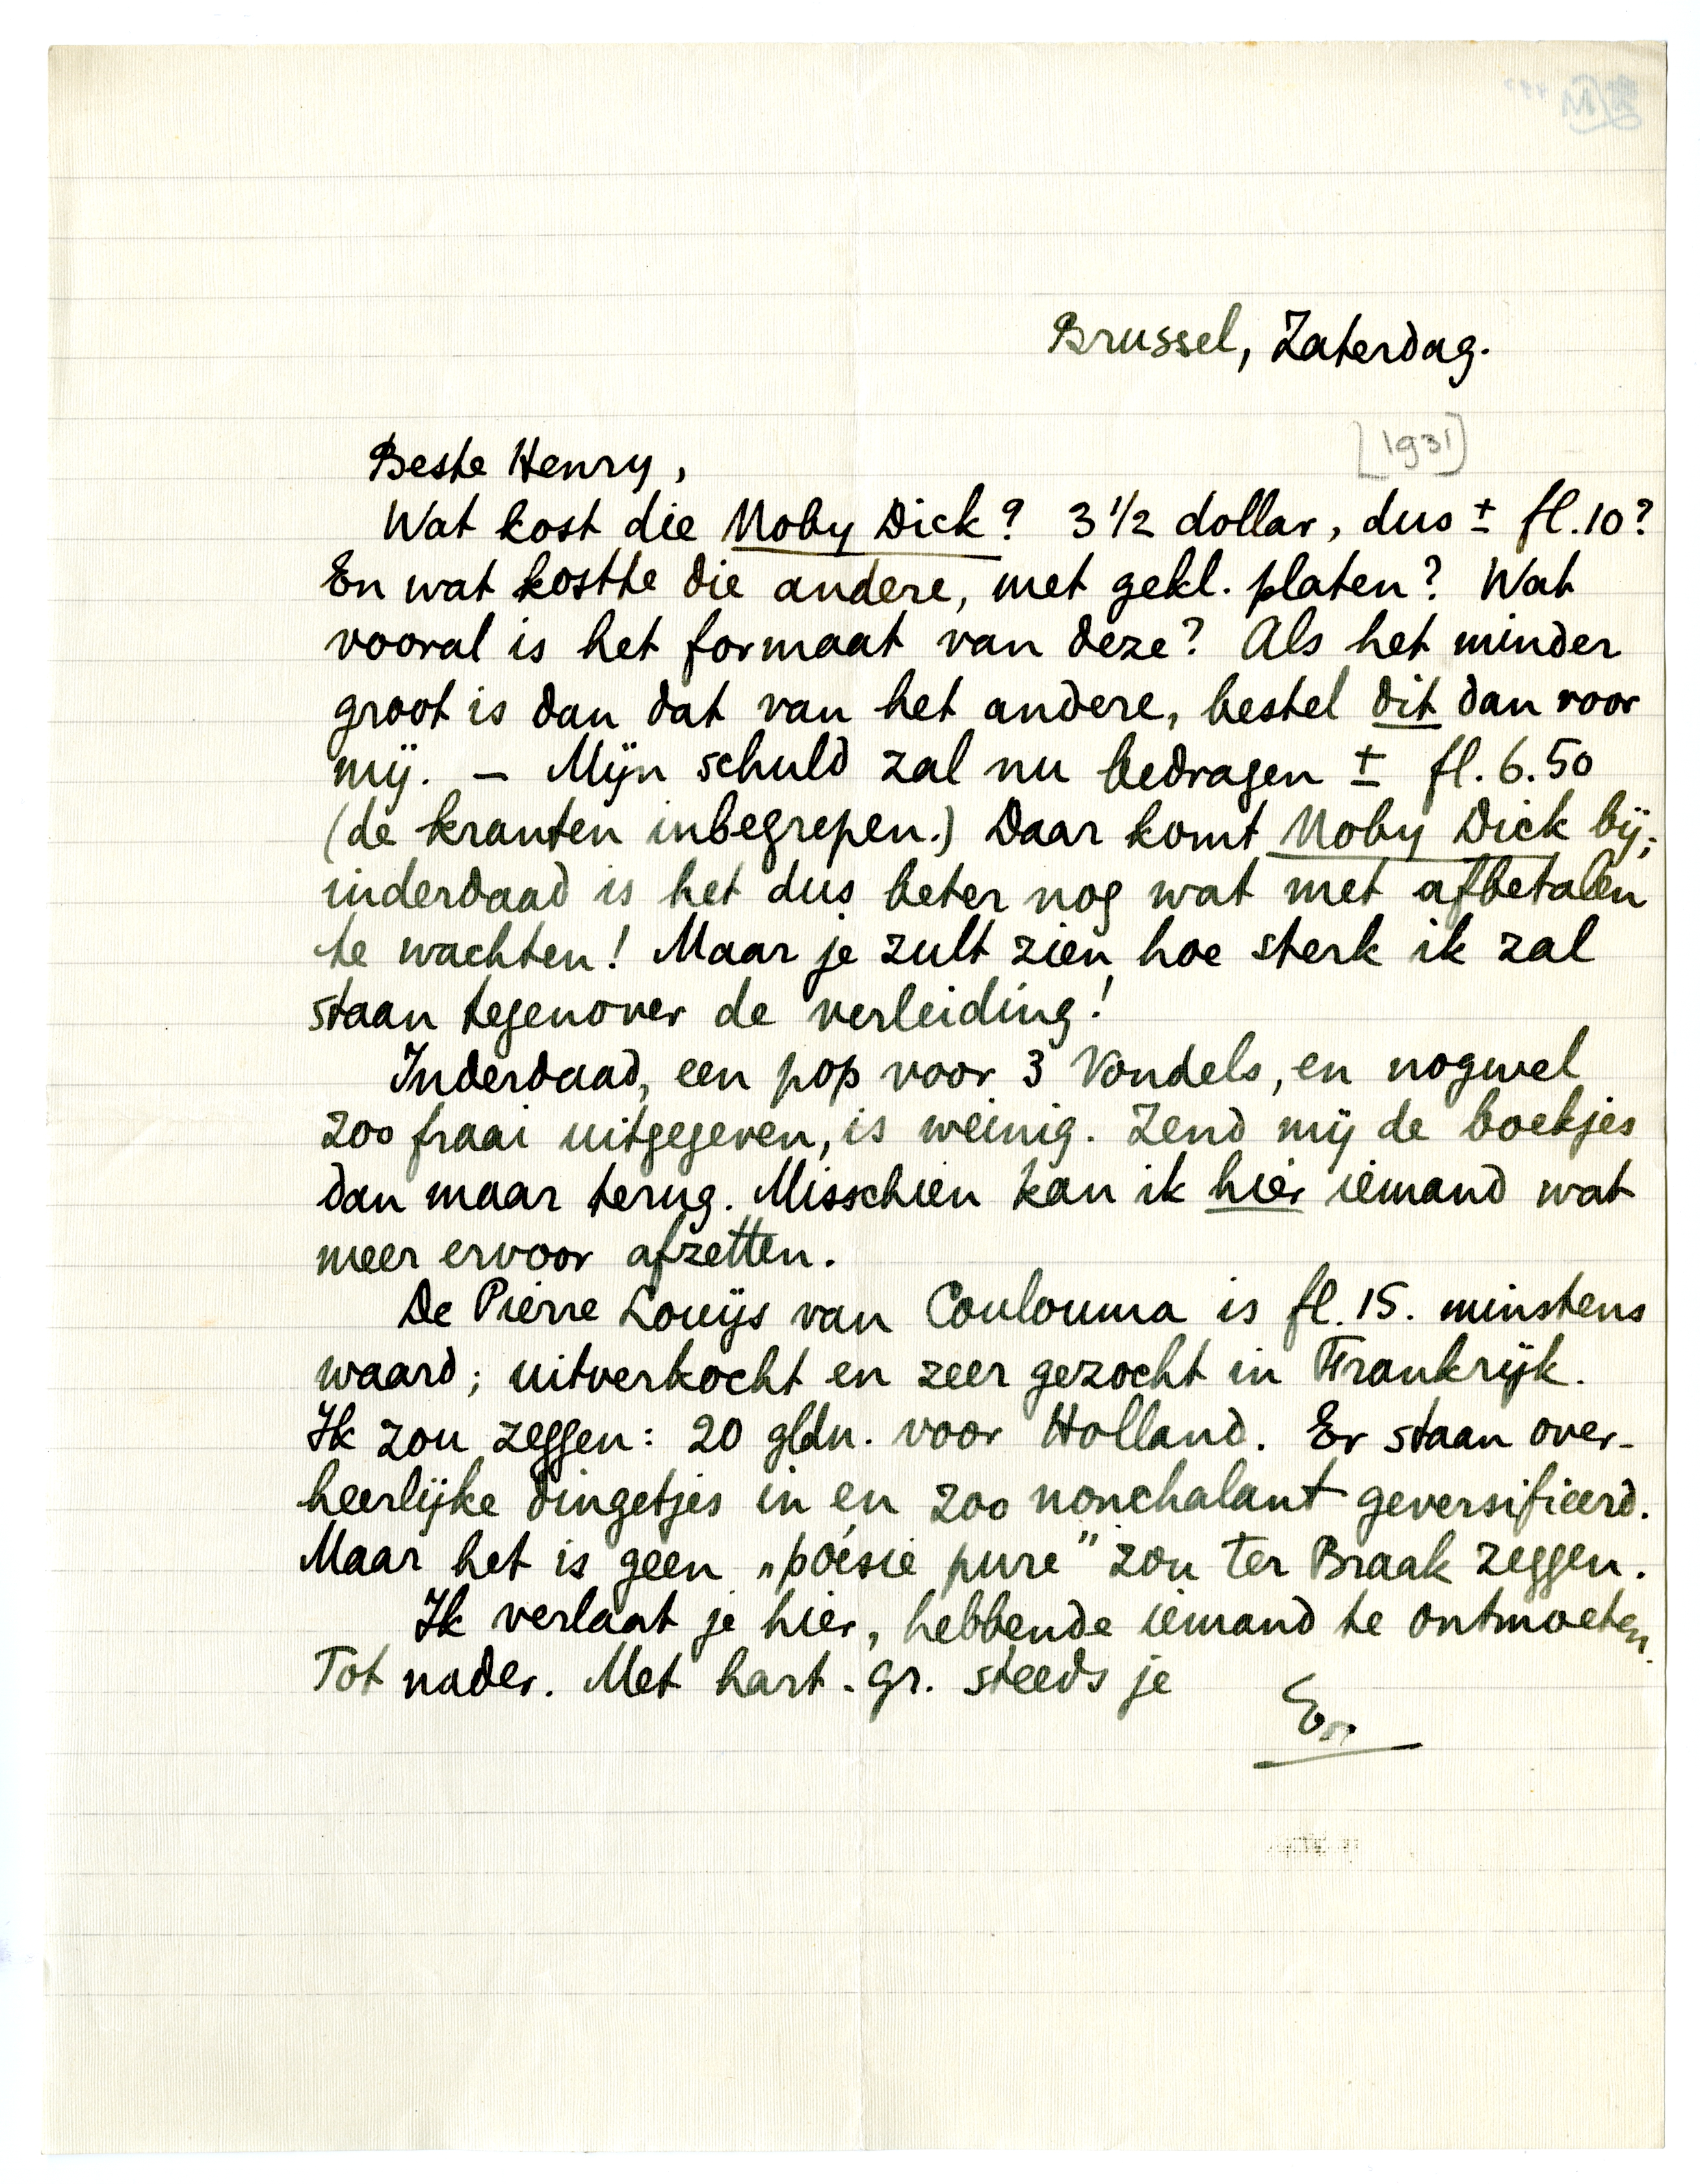 Brussel, Zaterdag.
[1931]
Beste Henry,
Wat kost die Moby Dick? 3 1/2 dollar, dus ± fl.10?
En wat kostte die andere, met gekl. platen? Wat
vooral is het formaat van deze? Als het minder
groot is dan dat van het andere, bestel dit dan voor
mij. — Mijn schuld zal nu bedragen ± fl. 6.50
(de kranten inbegrepen.) Daar komt Moby Dick bij;
inderdaad is het dus beter nog wat met afbetalen
te wachten! Maar je zult zien hoe sterk ik zal
staan tegenover de verleiding!
Inderdaad, een pop voor 3 Vondels, en nogwel
zoo fraai uitgegeven, is weinig. Zend mij de boekjes
dan maar terug. Misschien kan ik hier iemand wat
meer ervoor afzetten.
De Pierre Louÿs van Coulouma is fl. 15. minstens
waard; uitverkocht en zeer gezocht in Frankrijk.
Ik zou zeggen: 20 gldn. voor Holland. Er staan over-
heerlijke dingetjes in en zoo nonchalant geversifieerd.
Maar het is geen „poésie pure” zou ter Braak zeggen.
Ik verlaat je hier, hebbende iemand te ontmoeten.
Tot nader. Met hart. gr. steeds je